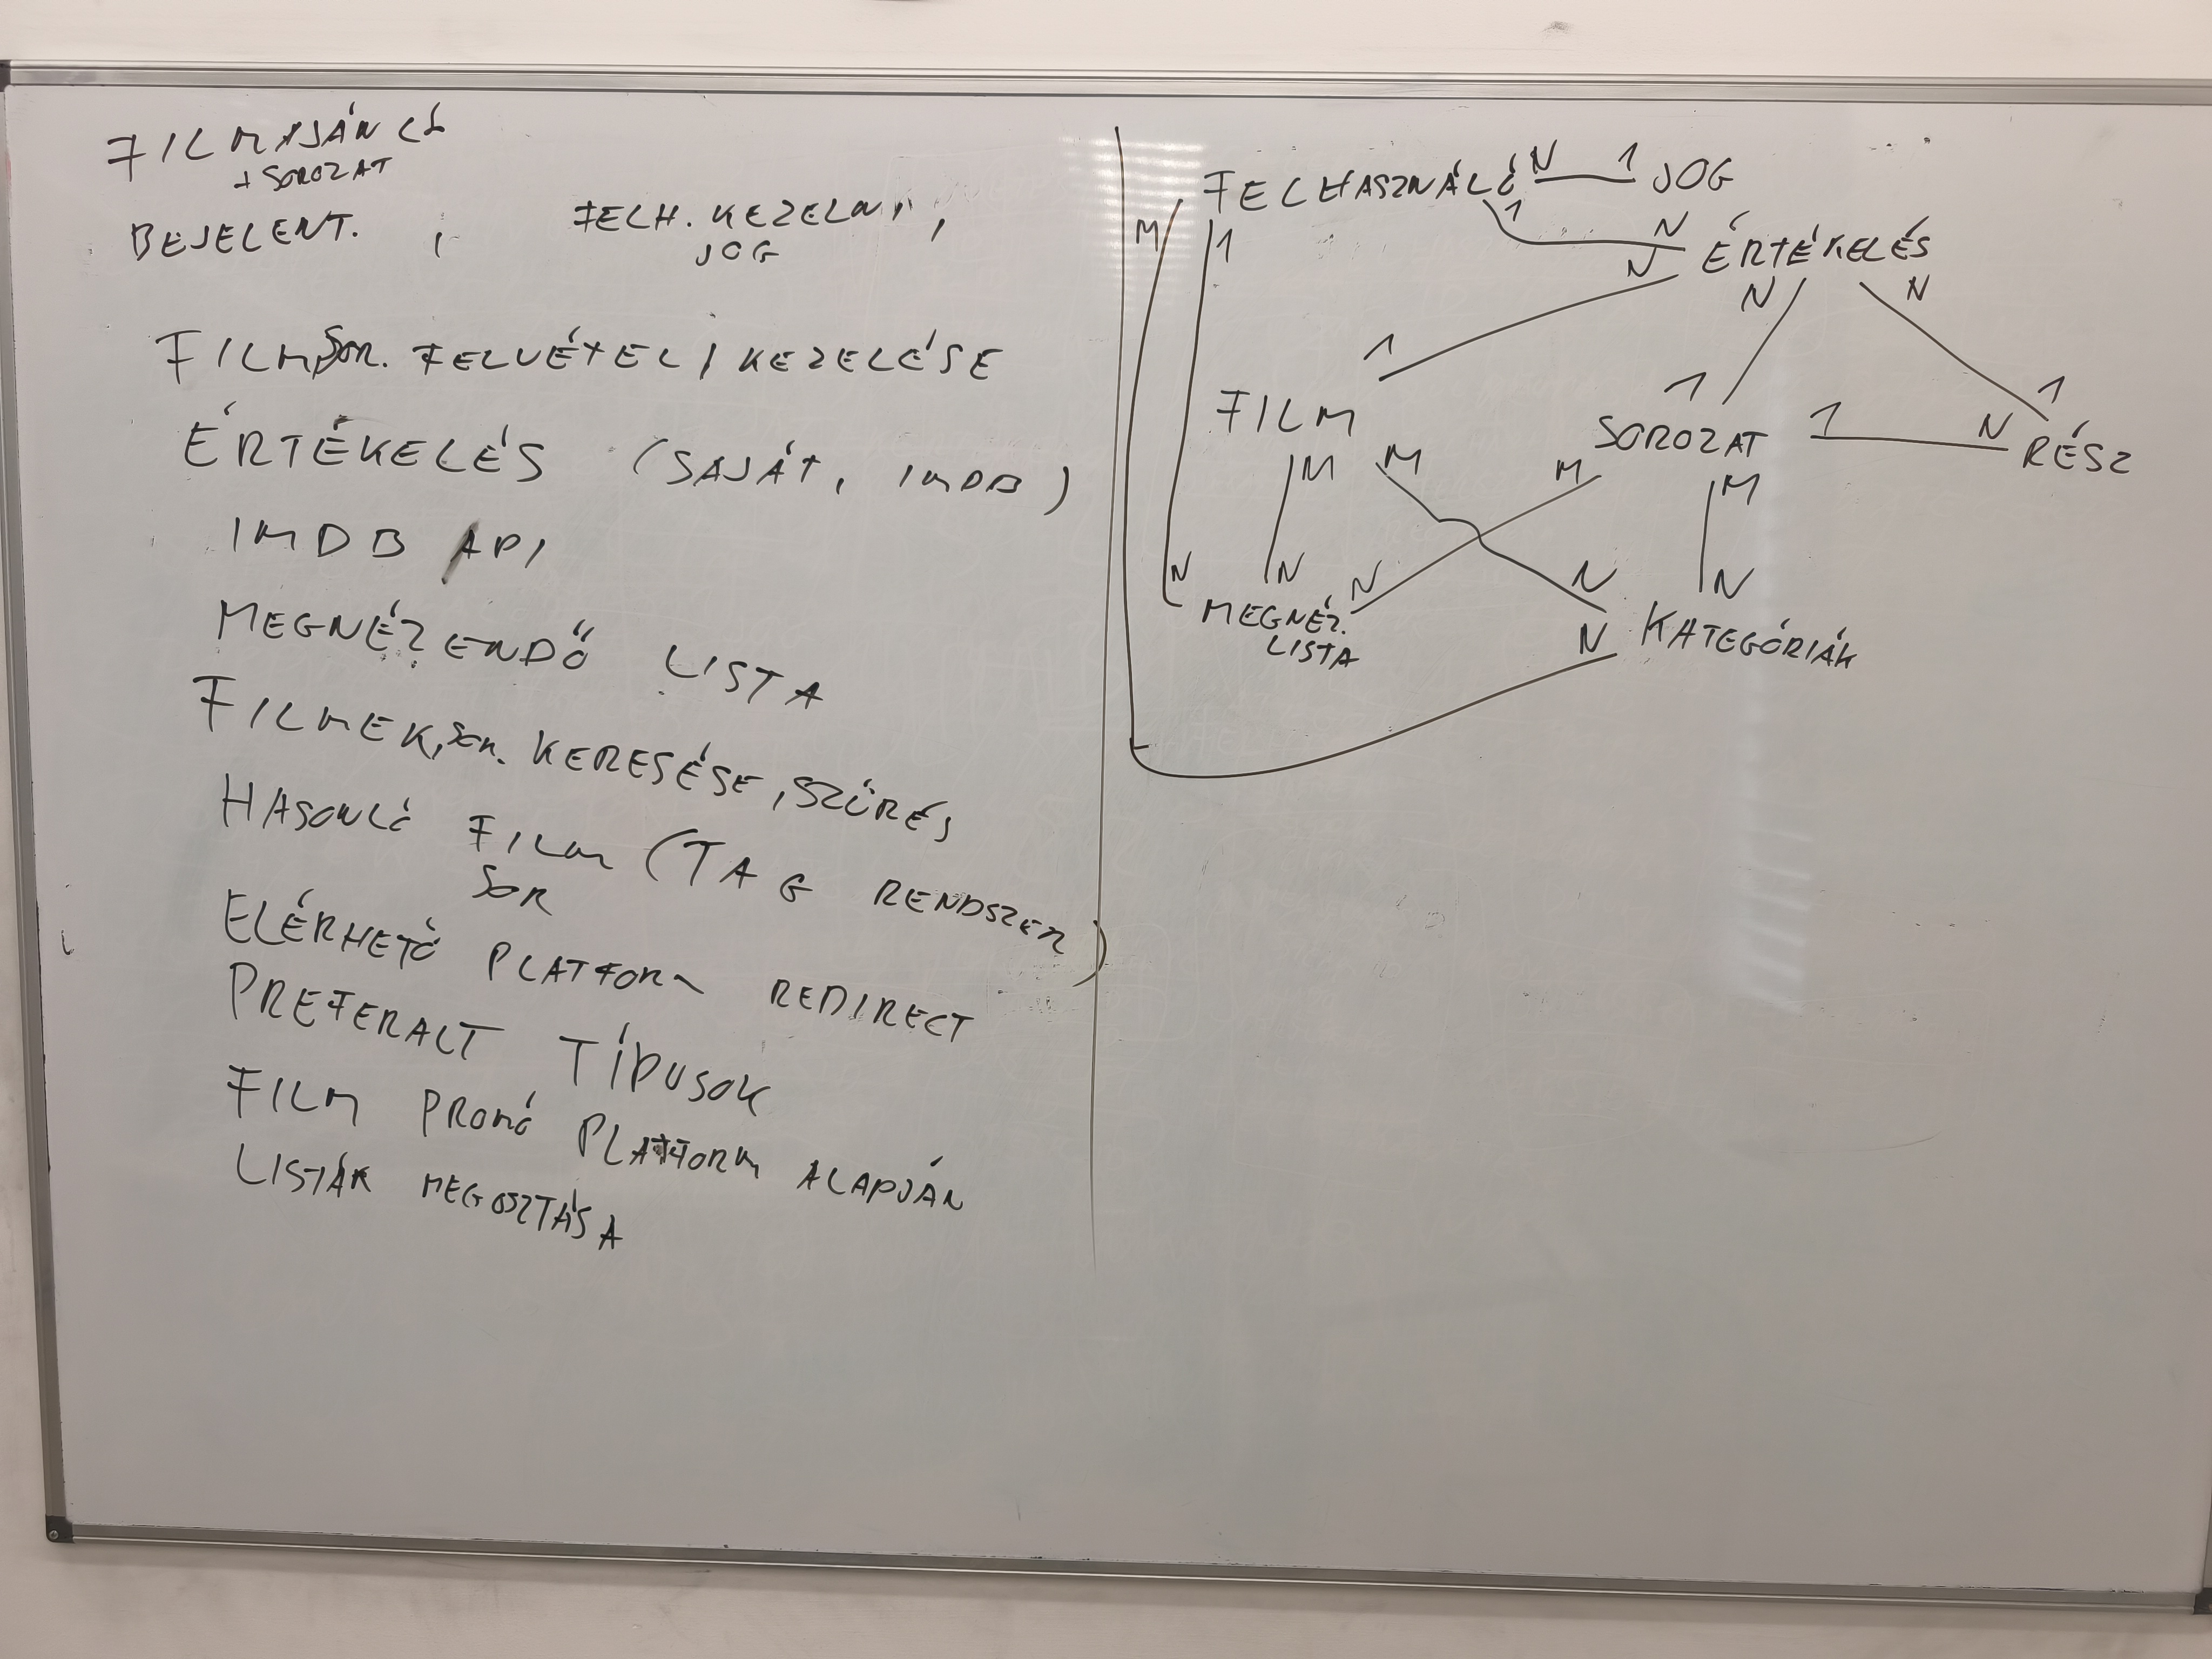 FILMAJÁNLÓ
+ SOROZAT
BEJELENT. , FELH. KEZELÉNI,
JOG
FILM, SOR. FELVÉTEL, KEZELÉSE
ÉRTÉKELÉS (SAJÁT, IMDB)
IMDB API
MEGNÉZENDŐ LISTA
FILMEK, SOR. KERESÉSE, SZŰRÉS
HASONLÓ FILM (TAG RENDSZER)
SOR
ELÉRHETŐ PLATFORM REDIRECT
PREFERALT TÍPUSOK
FILM PROMÓ PLATFORM ALAPJÁN
LISTÁK MEGOSZTÁSA
FELHASZNÁLÓ N 1 JOG
M 1 1 N ÉRTÉKELÉS
N N N
1 1 1
FILM SOROZAT 1 N RÉSZ
M M M M
N N N N N
MEGNÉZ. KATEGÓRIÁK
LISTA N